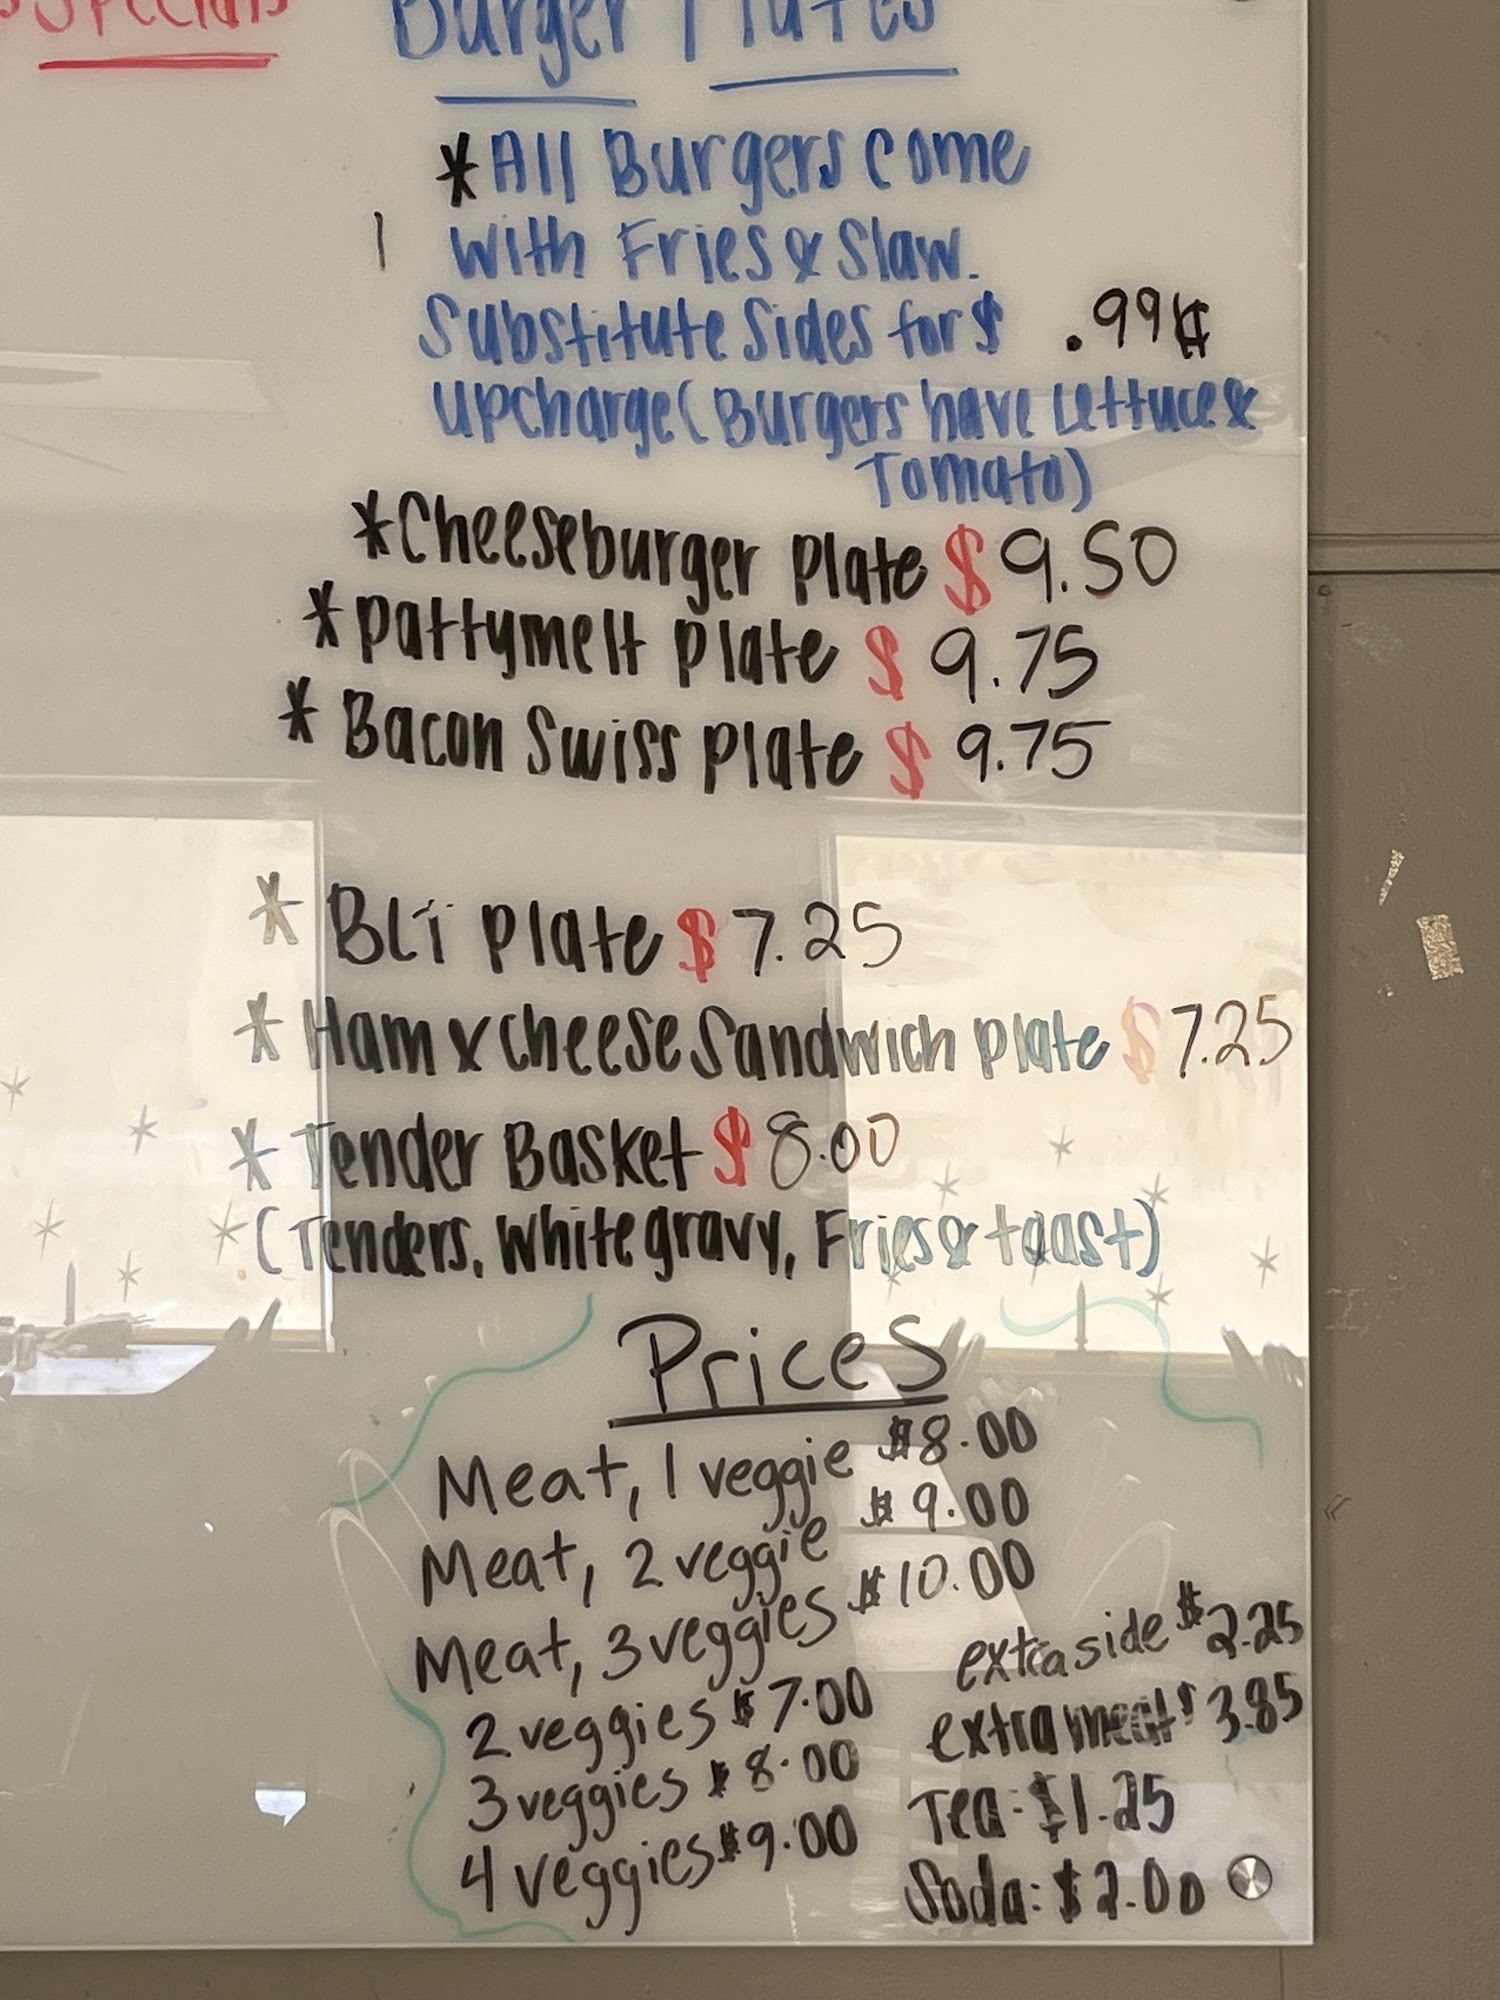 Specials
Burger Plates
*All Burgers come
with Fries & Slaw.
Substitute Sides for $ .99¢
upcharge (Burgers have Lettuce &
Tomato)
*Cheeseburger Plate $9.50
*Pattymelt Plate $ 9.75
*Bacon Swiss Plate $ 9.75
* BLT Plate $7.25
* Ham & Cheese Sandwich Plate $7.25
* Tender Basket $8.00
(Tenders, White gravy, Fries & toast)
Prices
Meat, 1 veggie $8.00
Meat, 2 veggie $9.00
Meat, 3 veggies $10.00
2 veggies $7.00
3 veggies $8.00
4 veggies $9.00
extra side $2.25
extra meat $3.85
Tea: $1.25
Soda: $2.00